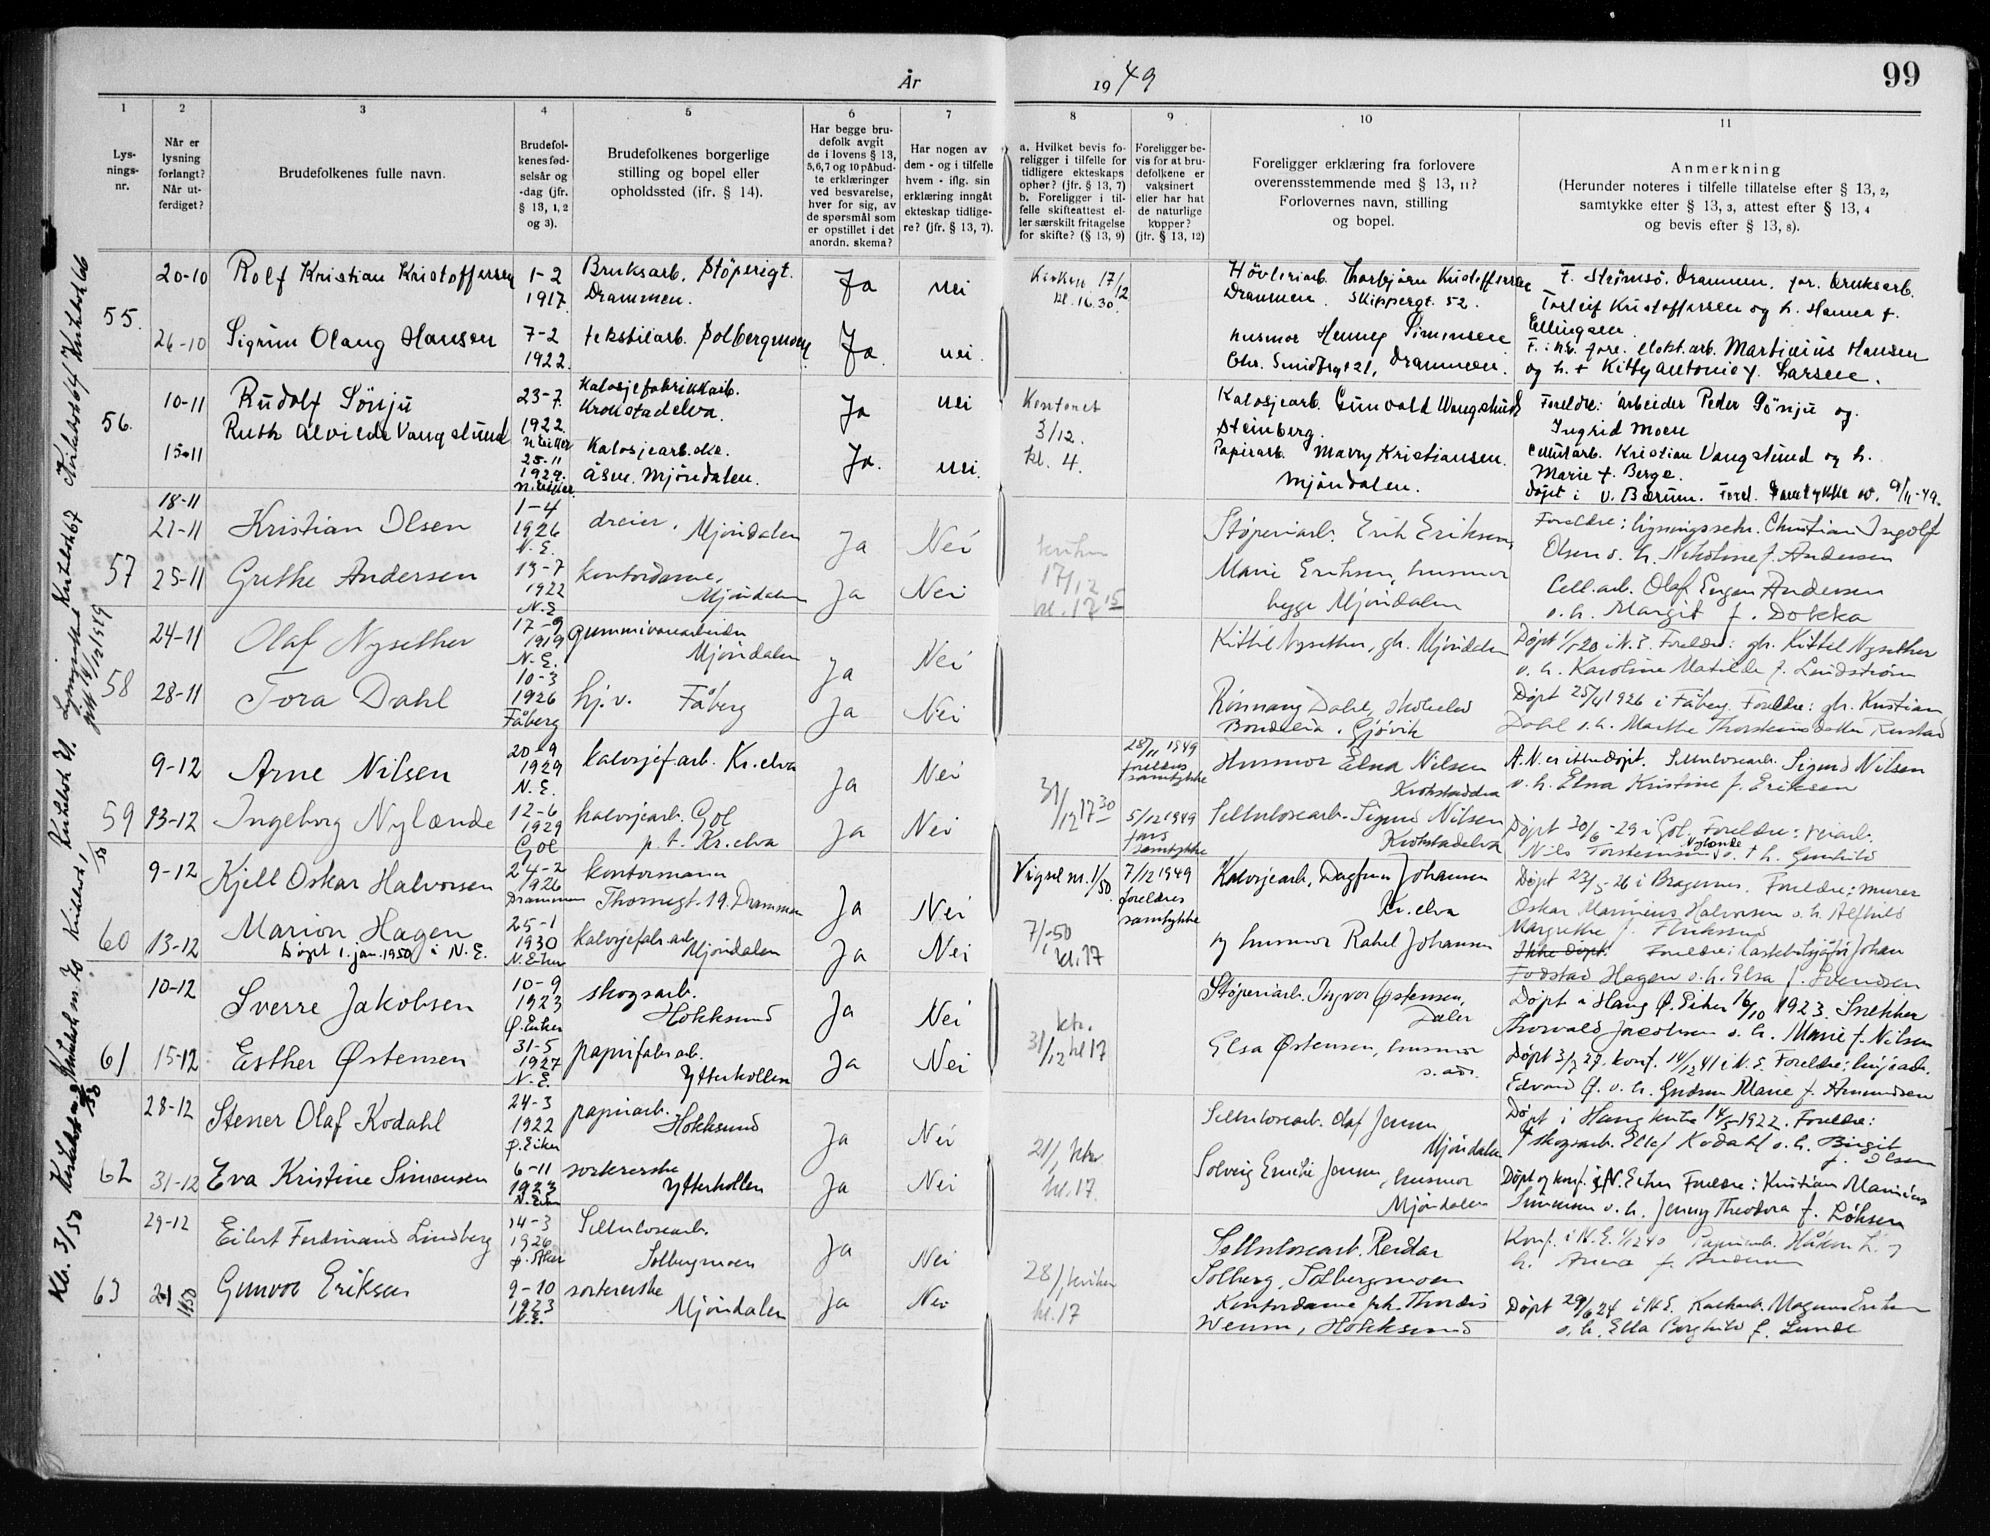 År 1949
99
1
2
3
4
5
6
7
8
9
10
11
Lys-
nings-
nr.
Når er
lysning
forlangt?
Når ut-
ferdiget?
Brudefolkenes fulle navn.
Brudefol-
kenes fød-
selsår og
-dag (jfr.
§ 13, 1, 2
og 3).
Brudefolkenes borgerlige
stilling og bopel eller
opholdssted (ifr. § 14).
Har begge bru-
defolk avgit
de i lovens § 13,
5,6,7 og 10 påbud-
te erklæringer
ved besvarelse,
hver for sig, av
de spørsmål som
er opstillet i det
anordn. skema?
Har nogen av
dem - og i tilfelle
hvem - iflg. sin
erklæring inngåt
ekteskap tidlige-
re? (jfr. § 13, 7).
a. Hvilket bevis fo-
religger i tilfelle for
tidligere ekteskaps
ophør? (jfr. § 13, 7)
b. Foreligger i til-
felle skifteattest el-
ler særskilt fritagelse
for skifte? (§ 13, 9)
Foreligger be-
vis for at bru-
defolkene er
vaksinert
eller har hat
de naturlige
kopper?
(jfr. § 13, 12)
Foreligger erklæring fra forlovere
overensstemmende med § 13, 11?
Forlovernes navn, stilling
og bopel.
Anmerkning
(Herunder noteres i tilfelle tillatelse efter § 13, 2,
samtykke efter § 13, 3, attest efter § 13, 4
og bevis efter § 13, 8).
55.
20-10
Rolf Kristian Kristoffersen
1-2
1917.
Bruksarb. Støperigt.
Drammen.
Ja
nei
Kirken 17/12
kl. 16.30
Høvleriarb. Thorbjørn Kristoffersen
Drammen. Skippergt. 52.
F. Strømsø, Drammen, for. bruksarb.
Torleif Kristoffersen og h. Hanna f.
Ellingsen.
26-10
Sigrun Olaug Hansen
7-2
1922.
tekstilarb. Solbergmoen
Ja.
nei.
husmor Henny Simonsen
21, Drammen.
Martinius Hansen
og h. + Kitty Antonie f. Larsen.
56.
10-11
Rudolf Sønju
23-7
1922.
N. Eiker
Kalosjefabrikkarb.
Krokstadelva.
Ja
nei
Kontoret
3/12.
kl. 4.
Kalosjearb. Gunvald Vangslund
Steinberg.
Foreldre: arbeider Peder Sønju og
Ingrid Moen
15-11
Ruth Alvilde Vangslund
25-11
1929.
N. Eiker.
Kalosjearb.ske.
Åsen, Mjøndalen.
Ja.
nei.
Papirarb. Marry Kristiansen.
Mjøndalen.
Cellul.arb. Kristian Vangslund og h.
Marie f. Berge.
Døpt i V. Bærum. Forel. samtykke av. 9/11-49.
57
18-11
21-11
Kristian Olsen
1-4
1926
N.E.
dreier, Mjøndalen
Ja
Nei
17/12
kl. 17 15
Støperiarb. Erik Eriksen,
Foreldre: ligningssekr. Christian Ingolf
Olsen o. h. Nikoline f. Andersen
25-11
Grethe Andersen
13-7
1922
N.E
kontordame,
Mjøndalen
Ja
Nei
Marie Eriksen, husmor
begge Mjøndalen
Cell.arb. Olaf Eugen Andersen
o.h. Margit f. Dokka
58
24-11
Olaf Nysether
17-9
1919
N.E.
gummivarearbeider
Mjøndalen
Ja
Nei
Kittil Nysether, gb. Mjøndalen
i N.E. Foreldre: gb. Kittel Nysether
o. h. Karoline Matilde f. Lindstrøm
28-11
Tora Dahl
10-3
1926
Fåberg
hj.v. Fåberg
Ja
Nei
Rønnaug Dahl,
Bondelia, Gjøvik
Døpt 25/4 1926 i Fåberg. Foreldre: gb. Kristian
Dahl o.h. Marthe Thorstensdatter
59
9-12
Arne Nilsen
20-9
1929
N.E.
kalosjef.arb. Kr.elva
Ja
Nei
31/12 17 30
28/11 1949
foreldres
samtykke
Husmor Elna Nilsen
Krokstadelva
A.N. er ikke døpt. Sellulosearb. Sigurd Nilsen
o. h. Elna Kristine f. Eriksen
13-12
Ingeborg Nylænde
12-6
1929
Gol
kalosjearb. Gol
p.t. Kr.elva
Ja
Nei
5/12 1949
fars
samtykke
Sellulosearb. Sigurd Nilsen
Krokstadelva
Døpt 30/6-29 i Gol. Foreldre: veiarb.
Nils Torsteinsen Nylænde o. + h. Gunhild
60
9-12
Kjell Oskar Halvorsen
24-2
1926
Drammen
kontormann
Thornegt. 19. Drammen
Ja
Nei
Vigsel nr. 1/50.
7/1-50
kl. 17
7/12 1949
foreldres
samtykke
Kalosjearb. Dagfinn Johansen
Kr. elva
Døpt 23/5-26 i Bragernes. Foreldre: murer
Oskar Marinius Halvorsen o. h. Alfhild
Margrethe f.
13-12
Marion Hagen
Døpt 1. jan. 1950 i N.E.
25-1
1930
N. Eiker
kalosjefabr.arb
Mjøndalen
Ja
Nei
og husmor Rakel Johansen
Ikke døpt. Foreldre: Johan
Fodstad Hagen o.h. Elsa f. Svendsen
61
10-12
Sverre Jakobsen
10-9
1923
Ø. Eiker
skogsarb.
Hokksund
Ja
Nei
ktr.
31/12 kl 17
Støperiarb. Ingvar Østensen,
Døpt i Haug Ø. Eiker 16/10 1923. Snekker
Thorvald Jacobsen o. h. Marie f. Nilsen
15-12
Esther Østensen
31-5
1927
N.E.
papirfabr.arb.
Ytterkollen
Ja
Nei
Elsa Østensen, husmor
s. adr.
Døpt 3/7 27. konf. 14/12 41 i N.E. Foreldre:
Edvard Ø. o. h. Gudrun Marie f. Amundsen
62
28-12
Stener Olaf Kodahl
24-3
1922
Ø. Eiker
papirarb.
Hokksund
Ja
Nei
21/1 ktr
kl. 17.
Sellulosearb. Olaf Jensen
Mjøndalen
Døpt i Haug kirke 14/5 1922. Foreldre:
skogsarb. Ellef Kodahl o. h. Birgit
f. Olsen
31-12
Eva Kristine Simensen
6-11
1923
N. Eiker
sortererske
Ytterkollen
Ja
Nei
Solveig Emelie Jensen, husmor
Mjøndalen
Døpt og konf. i N. Eiker Foreldre: Kristian Marinius
Simensen o. h. Jenny Theodora f. Løksen
63
29-12
Eilert Ferdinand Lindberg
14-3
1926
Sellulosearb.
Solbergmoen
Ja
Nei
28/1 kirken
kl. 17
Sellulosearb. Reidar
Solberg, Solbergmoen
Konf. i N.E. Papirarb. Håkon L. og
h. Anna f. Andersen
2/1 1950
Gunvor Eriksen
9-10
1923
N.E.
sortererske
Mjøndalen
Ja
Nei
Kontordame frk. Thordis
Wenn, Hokksund
Døpt 29/6 24 i N.E. Magnus Eriksen
o. h. Ella Borghild f. Lunde